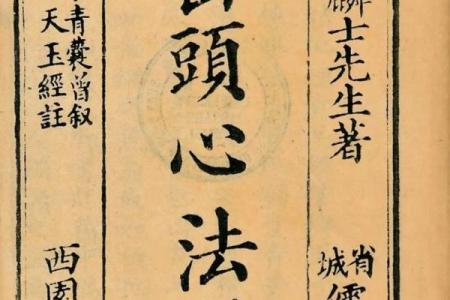 麟士先生著
省城
頭心法
青囊曾叙
天玉經註
西園